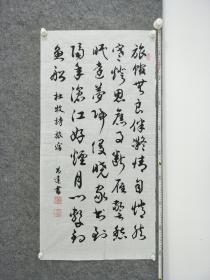 旅館無良伴凝情自悄然
寒燈思舊事斷雁警愁
眠遠夢歸侵曉家書到
隔年滄江好煙月門繫釣
魚船 杜牧詩旅宿
書